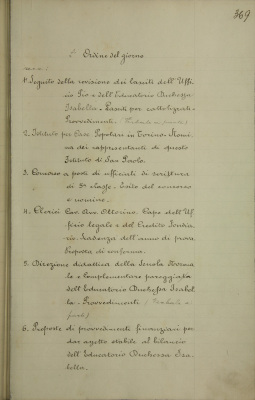 369
Ordine del giorno
1. Seguito della revisione dei lasciti dell'Uffi-
cio Pio e dell'Educatorio Duchessa
Isabella - Lasciti per
Provvedimenti.
2. Istituto per Case Popolari in Torino. Nomi-
na dei rappresentanti di questo
Istituto di San Paolo.
3. Concorso a posti di ufficiali di scrittura
di 3ª classe. Esito del concorso
e nomine.
4. Clerici Cav. Avv. Ottorino. Capo dell'Uf-
ficio legale e del Credito Fondia-
rio. Scadenza dell'anno di prova
Proposta di conferma.
5. Direzione didattica della Scuola Normale
e complementare pareggiata
dell'Educatorio Duchessa Isabel-
la - Provvedimenti
6. Proposte di provvedimenti finanziari per
dare assetto stabile al bilancio
dell'Educatorio Duchessa Isa-
bella.